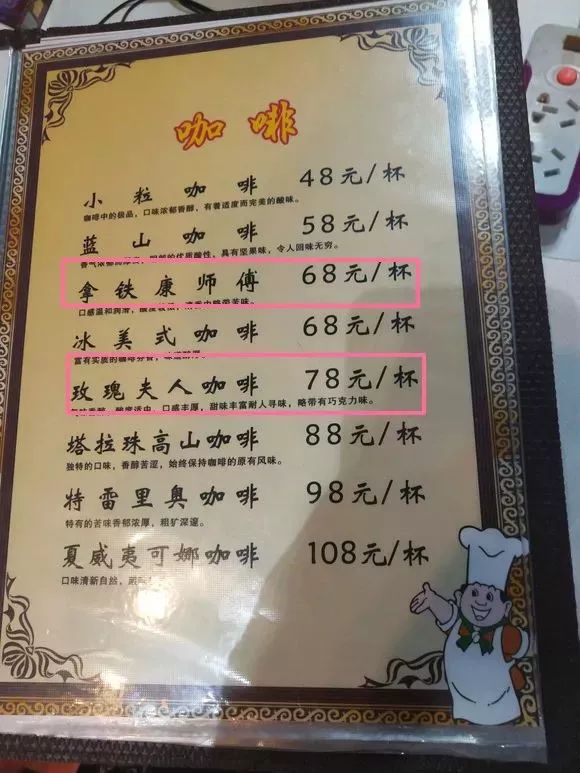 咖啡
小粒咖啡 48元/杯
咖啡中的极品，口味浓郁香醇，有着适度而完美的酸味。
蓝山咖啡 58元/杯
的优质酸性，具有坚果味，令人回味无穷。
拿铁康师傅 68元/杯
口感温和润滑，
略带苦味。
冰美式咖啡 68元/杯
富有实质的咖啡
玫瑰夫人咖啡 78元/杯
酸度适中，口感丰厚，甜味丰富耐人寻味，略带有巧克力味。
塔拉珠高山咖啡 88元/杯
独特的口味，香醇苦涩，始终保持咖啡的原有风味。
特雷里奥咖啡 98元/杯
特有的苦味香郁浓厚，粗犷深邃。
夏威夷可娜咖啡 108元/杯
口味清新自然，